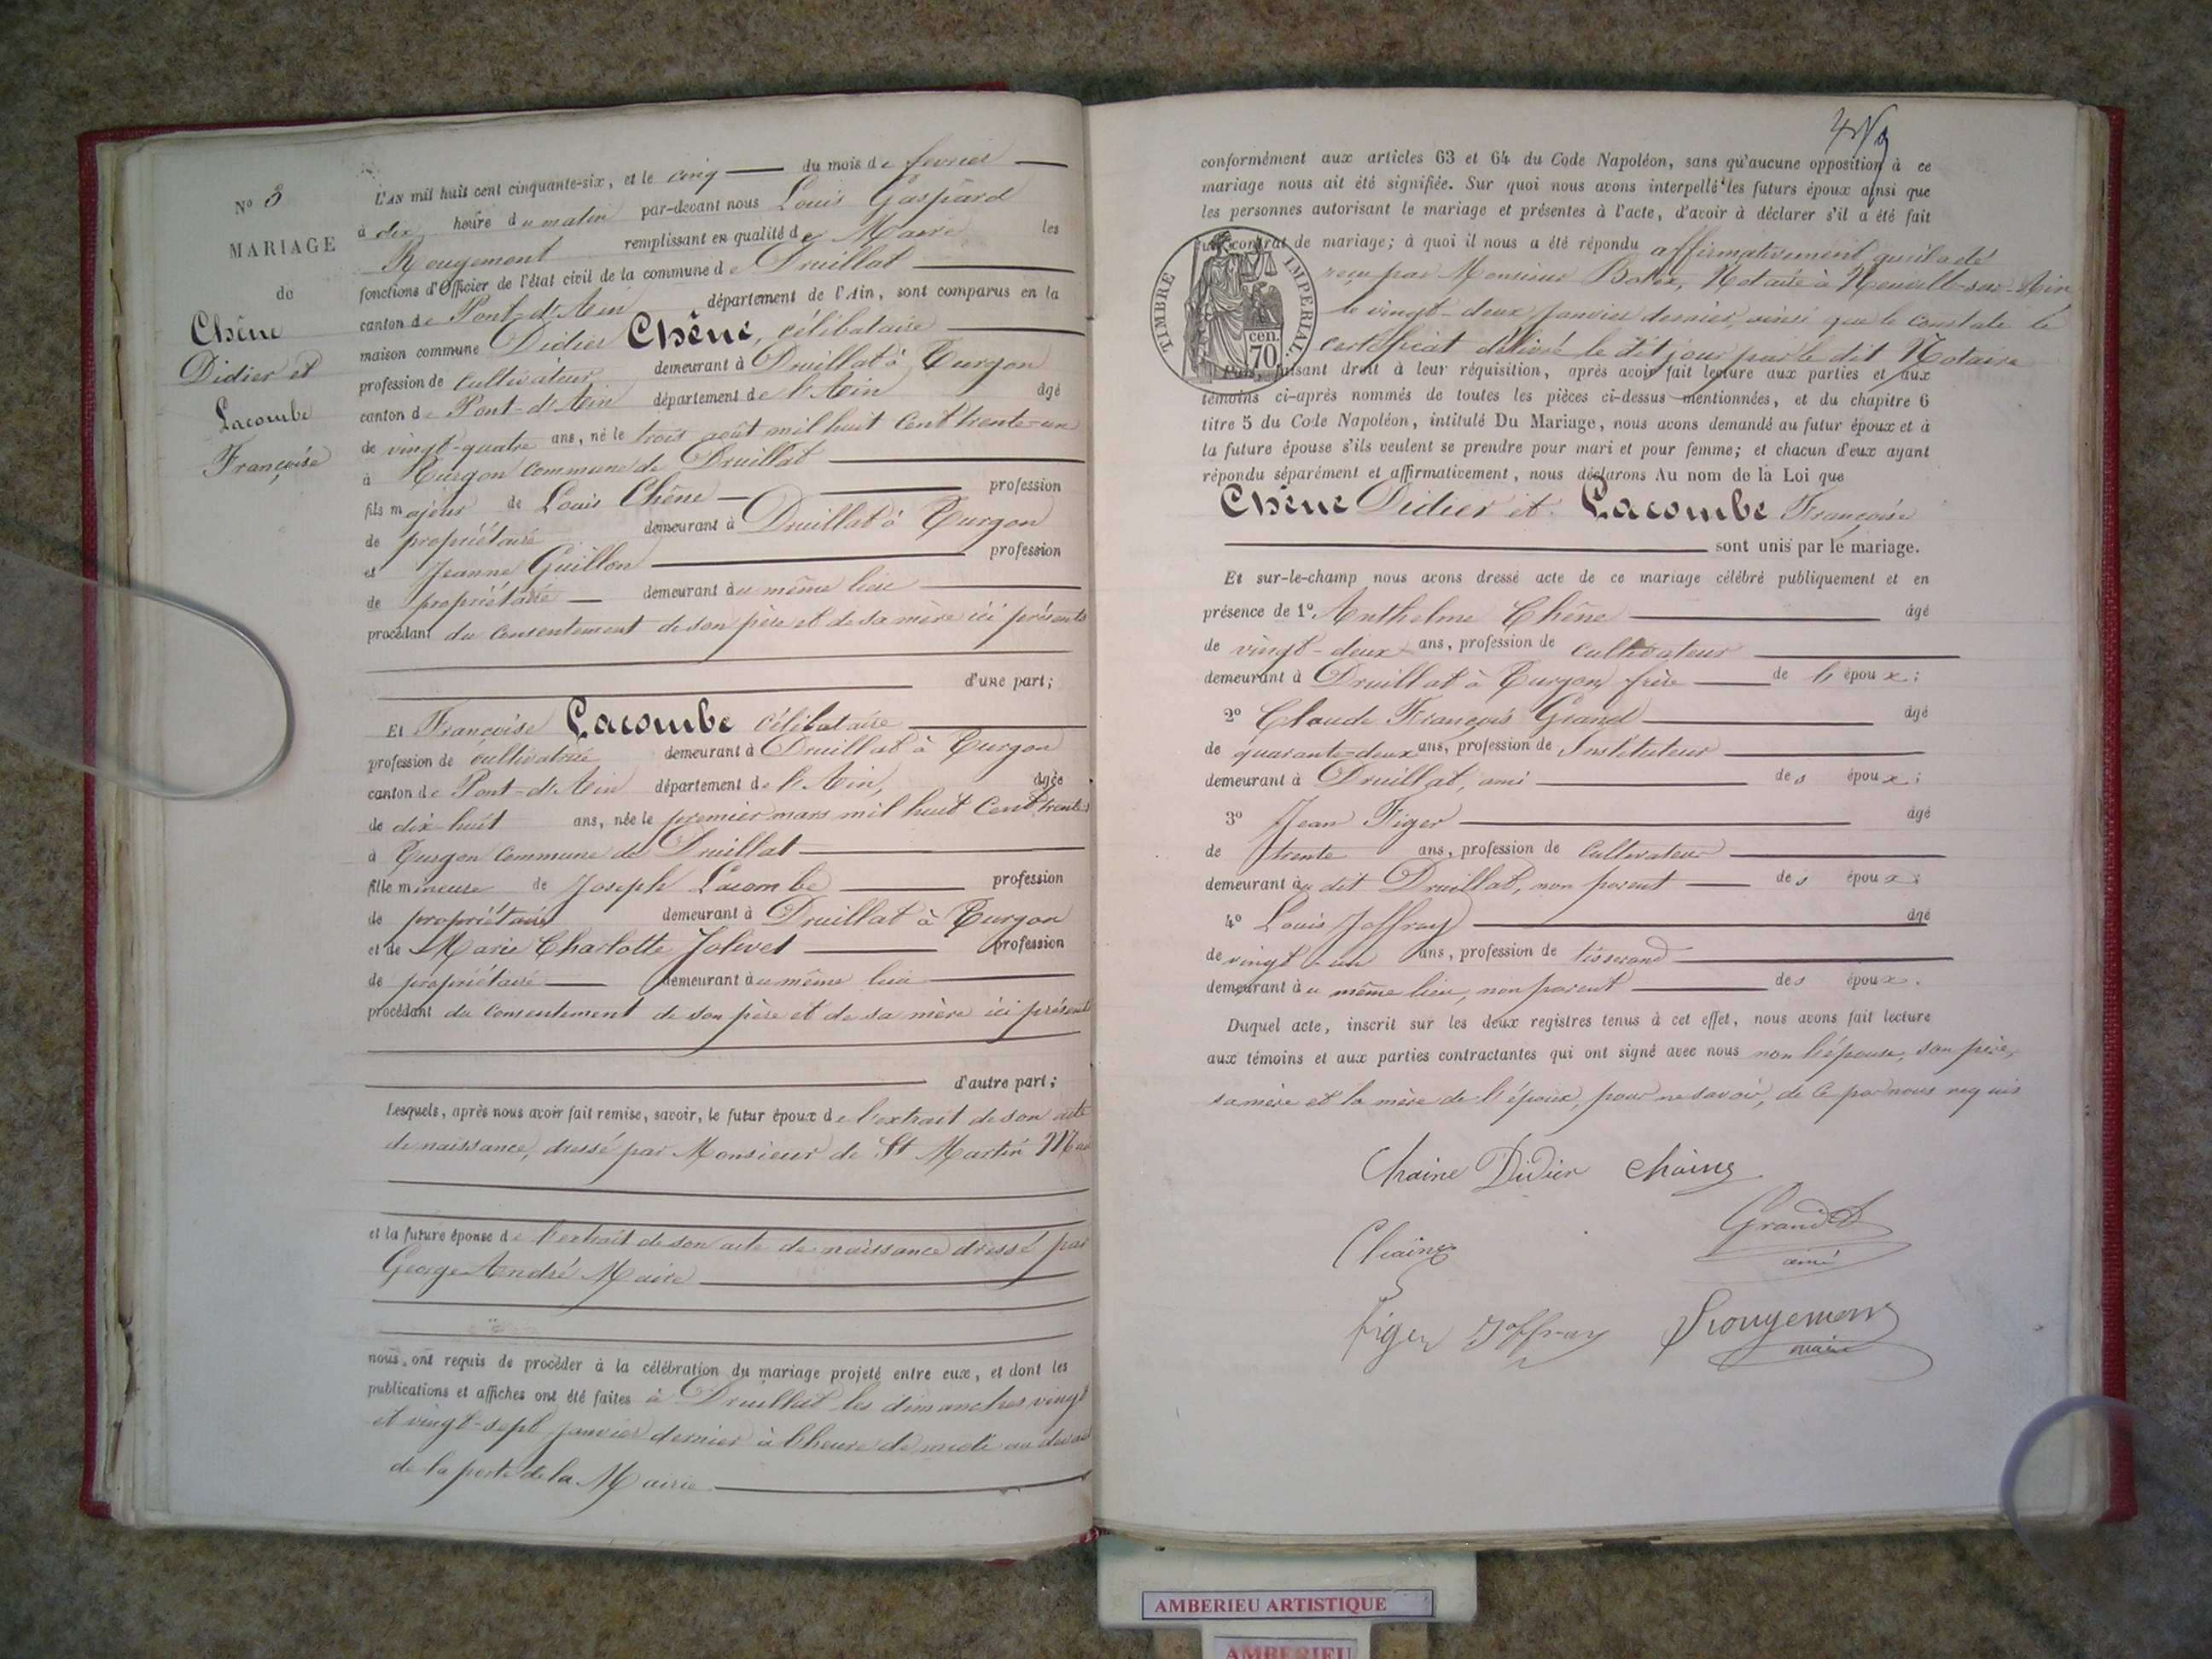 N° 3
MARIAGE
de
Chêne
Didier et
Lacombe
Françoise
L'AN mil huit cent cinquante-six, et le cinq du mois de fevrier
à dix heure du matin par-devant nous Louis Gaspard
Rougemont remplissant en qualité de Maire les
fonctions d'Officier de l'état civil de la commune de Druillat
canton de Pont-d'Ain département de l'Ain, sont comparus en la
maison commune Didier Chêne, célibataire
profession de cultivateur demeurant à Druillat à Turgon
canton de Pont-d'Ain département de l'Ain âgé
de vingt-quatre ans, né le trois août mil huit cent trente-un
à Turgon commune de Druillat
fils majeur de Louis Chêne profession
de propriétaire demeurant à Druillat à Turgon
et Jeanne Guillon profession
de propriétaire demeurant au même lieu
procédant du consentement de son père et de sa mère ici présents
d'une part;
Et Françoise Lacombe célibataire
profession de cultivatrice demeurant à Druillat à Turgon
canton de Pont-d'Ain département de l'Ain, âgée
de dix huit ans, née le premier mars mil huit cent trente
à Turgon commune de Druillat
fille mineure de Joseph Lacombe profession
de propriétaire demeurant à Druillat à Turgon
et de Marie Charlotte Jolivet profession
de propriétaire demeurant au même lieu
procédant du consentement de son père et de sa mère ici présents
d'autre part;
Lesquels, après nous avoir fait remise, savoir, le futur époux de l'extrait de son acte
de naissance, dressé par Monsieur de St Martin
et la future épouse de l'extrait de son acte de naissance dressé par
George André Maire
nous ont requis de procéder à la célébration du mariage projeté entre eux, et dont les
publications et affiches ont été faites à Druillat les dimanches vingt
et vingt-sept janvier dernier à l'heure de midi au devant
de la porte de la Mairie
conformément aux articles 63 et 64 du Code Napoléon, sans qu'aucune opposition à ce
mariage nous ait été signifiée. Sur quoi nous avons interpellé les futurs époux ainsi que
les personnes autorisant le mariage et présentes à l'acte, d'avoir à déclarer s'il a été fait
un contrat de mariage; à quoi il nous a été répondu affirmativement qu'il a été
reçu par Monsieur Notaire à Neuville-sur-Ain
le vingt-deux janvier dernier, ainsi que le constate le
certificat délivré le dit jour par le dit Notaire
TIMBRE IMPERIAL
cen.
70
Puis, faisant droit à leur réquisition, après avoir fait lecture aux parties et aux
témoins ci-après nommés de toutes les pièces ci-dessus mentionnées, et du chapitre 6
titre 5 du Code Napoléon, intitulé Du Mariage, nous avons demandé au futur époux et à
la future épouse s'ils veulent se prendre pour mari et pour femme; et chacun d'eux ayant
répondu séparément et affirmativement, nous déclarons Au nom de la Loi que
Chêne Didier et Lacombe Françoise
sont unis par le mariage.
Et sur-le-champ nous avons dressé acte de ce mariage célébré publiquement et en
présence de 1°. Anthelme Chêne âgé
de vingt-deux ans, profession de cultivateur
demeurant à Druillat à Turgon, frère de l'époux;
2° Claude François Grand âgé
de quarante-deux ans, profession de Instituteur
demeurant à Druillat, ami des époux;
3° Jean Figer âgé
de trente ans, profession de cultivateur
demeurant au dit Druillat, non parent des époux;
4° Louis Joffray âgé
de vingt-un ans, profession de tisserand
demeurant au même lieu, non parent des époux.
Duquel acte, inscrit sur les deux registres tenus à cet effet, nous avons fait lecture
aux témoins et aux parties contractantes qui ont signé avec nous non l'épouse, son père,
sa mère et la mère de l'époux, pour ne savoir, de ce par nous requis
Chaine Didier Chaine
Chaine Grand
ainé
figer Joffray Rougemont
maire
AMBERIEU ARTISTIQUE
AMBERIEU